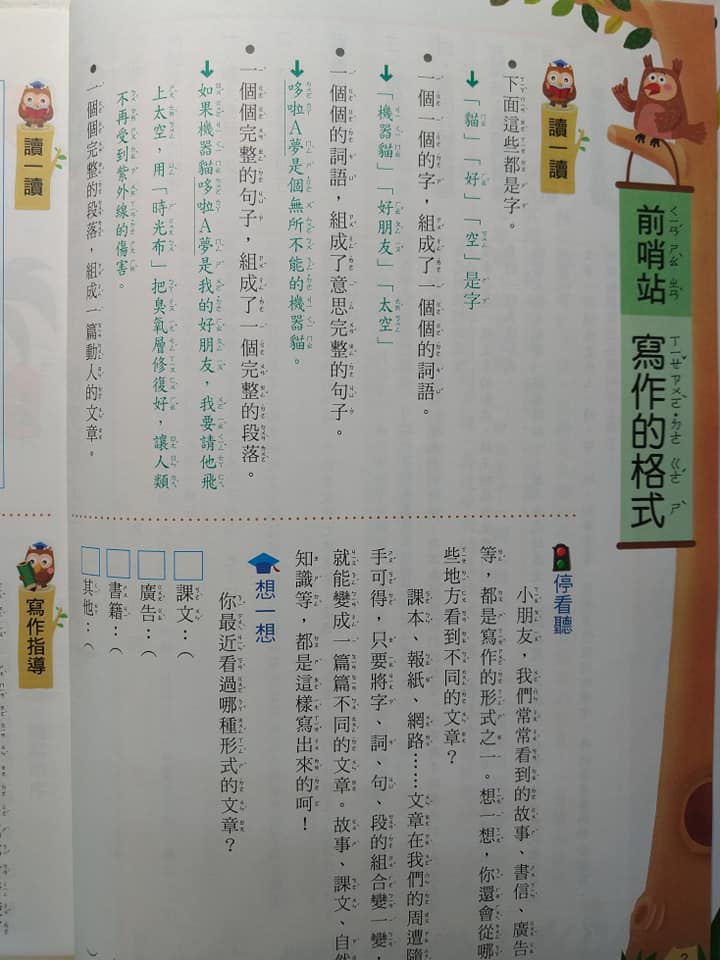 前哨站 寫作的格式
讀一讀
●下面這些都是字。
↓「貓」「好」「空」是字
●一個一個的字，組成了一個個的詞語。
↓「機器貓」「好朋友」「太空」
●一個個的詞語，組成了意思完整的句子。
↓哆啦A夢是個無所不能的機器貓。
●一個個完整的句子，組成了一個完整的段落。
↓如果機器貓哆啦A夢是我的好朋友，我要請他飛
上太空，用「時光布」把臭氧層修復好，讓人類
不再受到紫外線的傷害。
●一個個完整的段落，組成一篇動人的文章。
停看聽
小朋友，我們常常看到的故事、書信、廣告
等，都是寫作的形式之一。想一想，你還會從哪
些地方看到不同的文章？
課本、報紙、網路……文章在我們的周遭隨
手可得，只要將字、詞、句、段的組合變一變，
就能變成一篇篇不同的文章。故事、課文、自然
知識等，都是這樣寫出來的呵！
想一想
你最近看過哪種形式的文章？
□課文：（
□廣告：（
□書籍：（ ）
□其他：（ ）
2
讀一讀
寫作指導